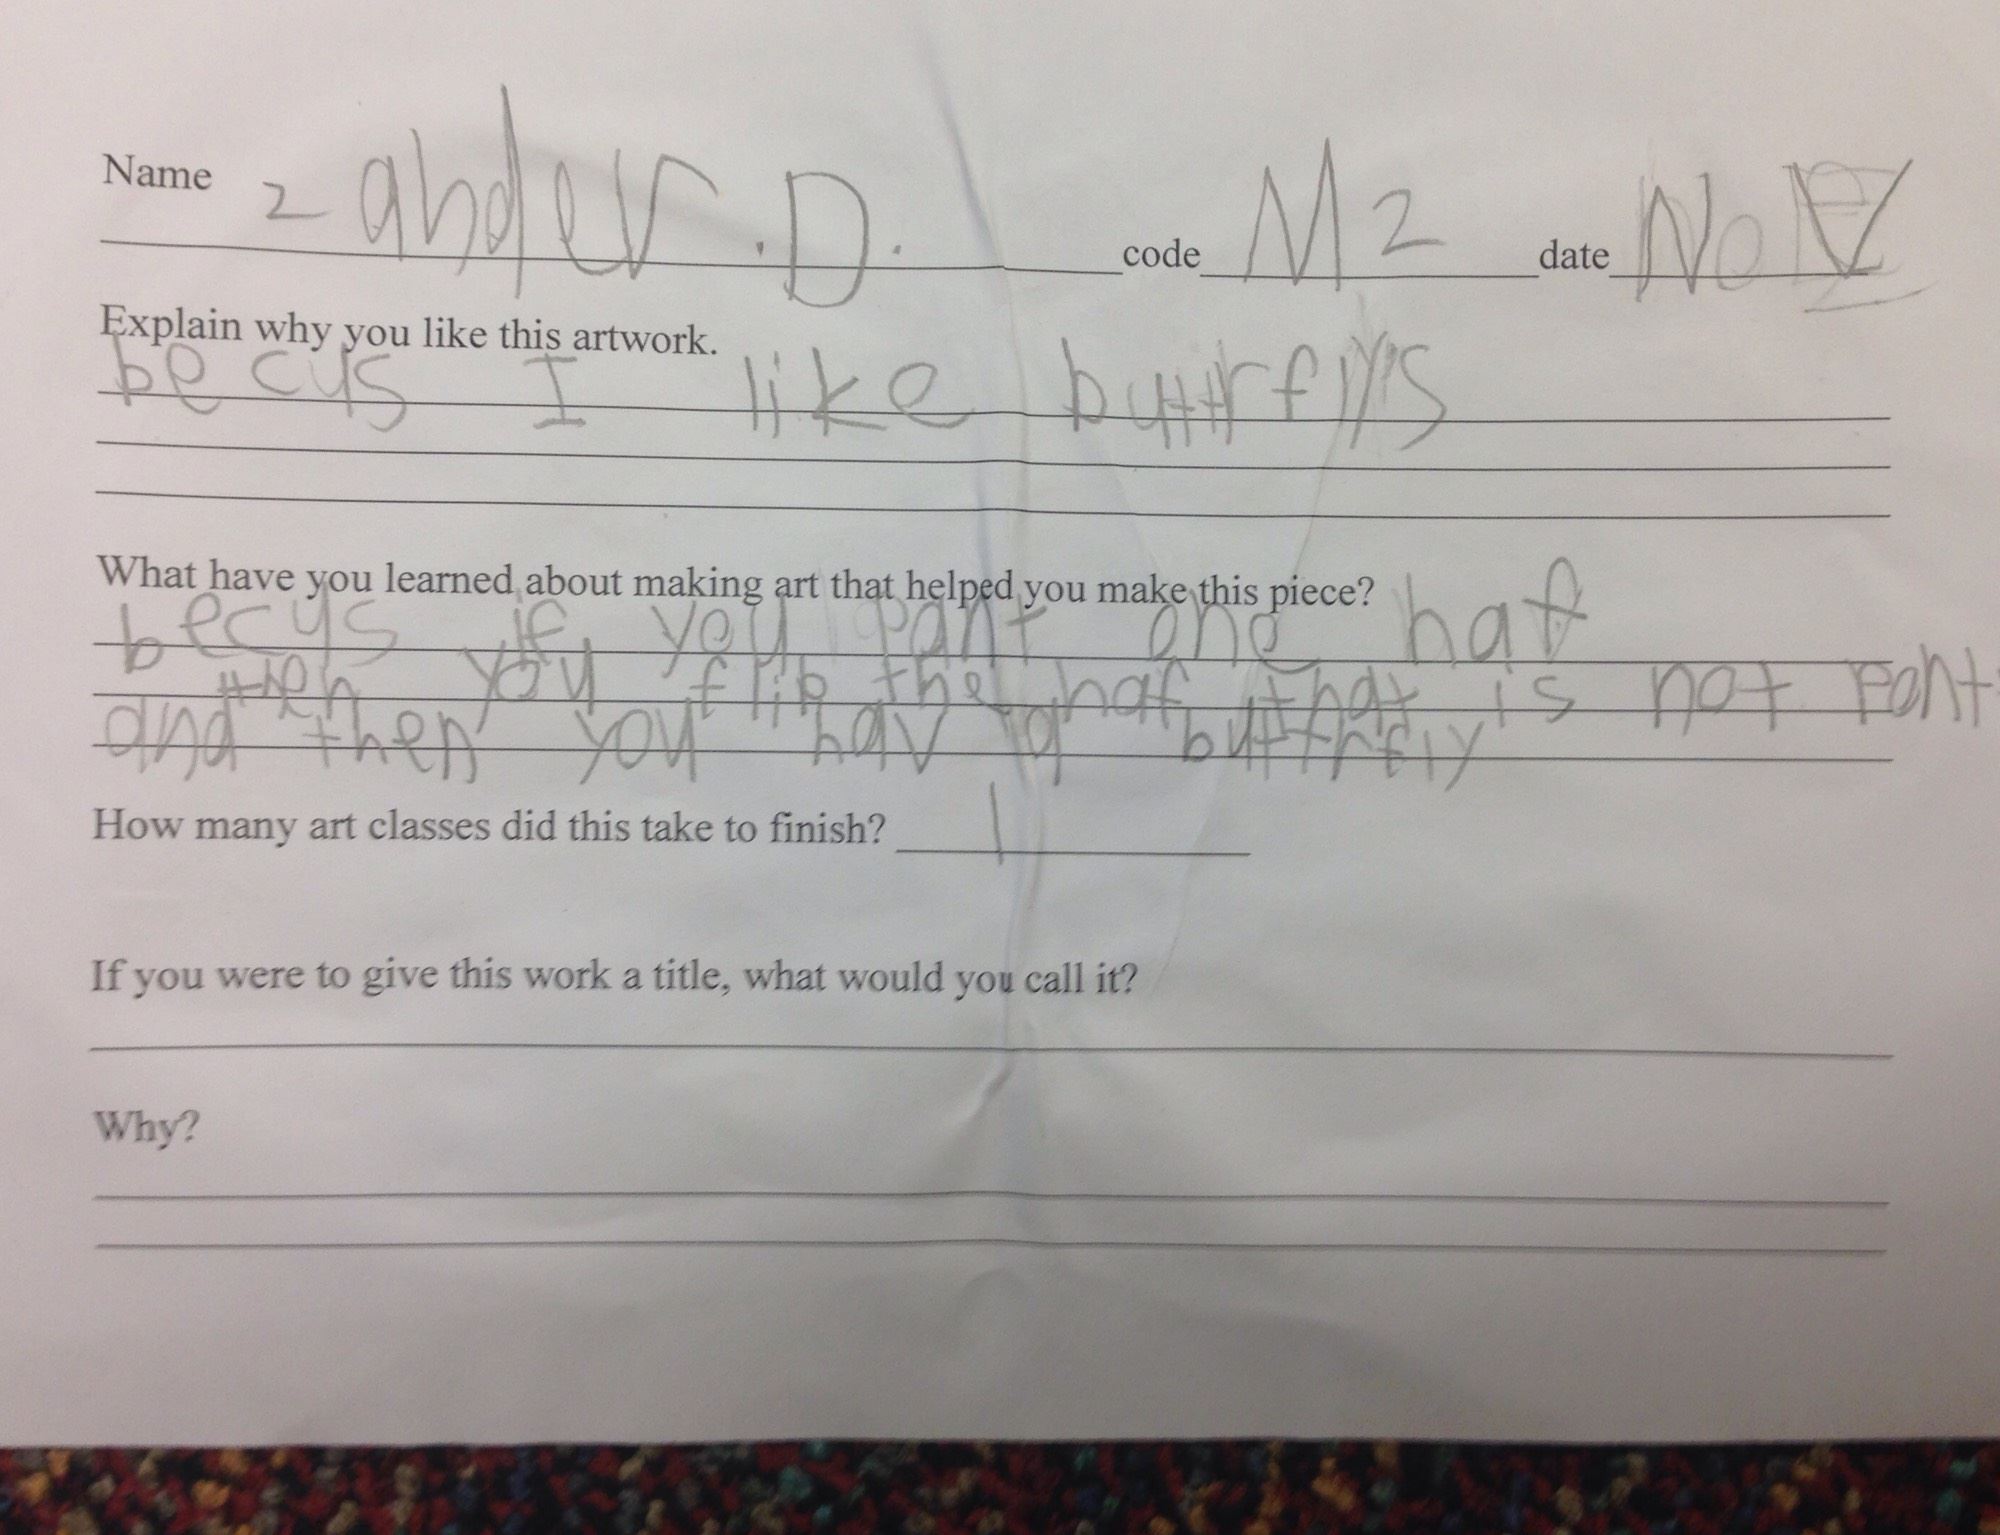 Name Zander. D. code M2 date Nov
Explain why you like this artwork.
becus I like buttrflys
What have you learned about making art that helped you make this piece?
becys if you pant one haf
then you flip the haf that is not pant
and then you hav a buttrfly
How many art classes did this take to finish? 1
If you were to give this work a title, what would you call it?
Why?